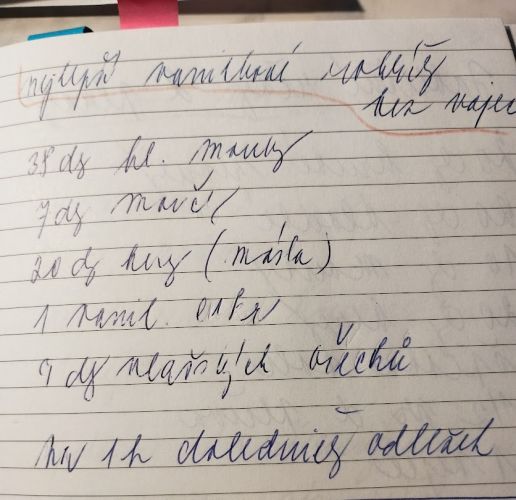 nejlepší vanilkové rohlíčky
bez vajec
38 dg hl. mouky
7 dg moučk
20 dg hery (másla)
1 vanil. cukr
9 dg vlašských ořechů
na 1 h do lednice odležet